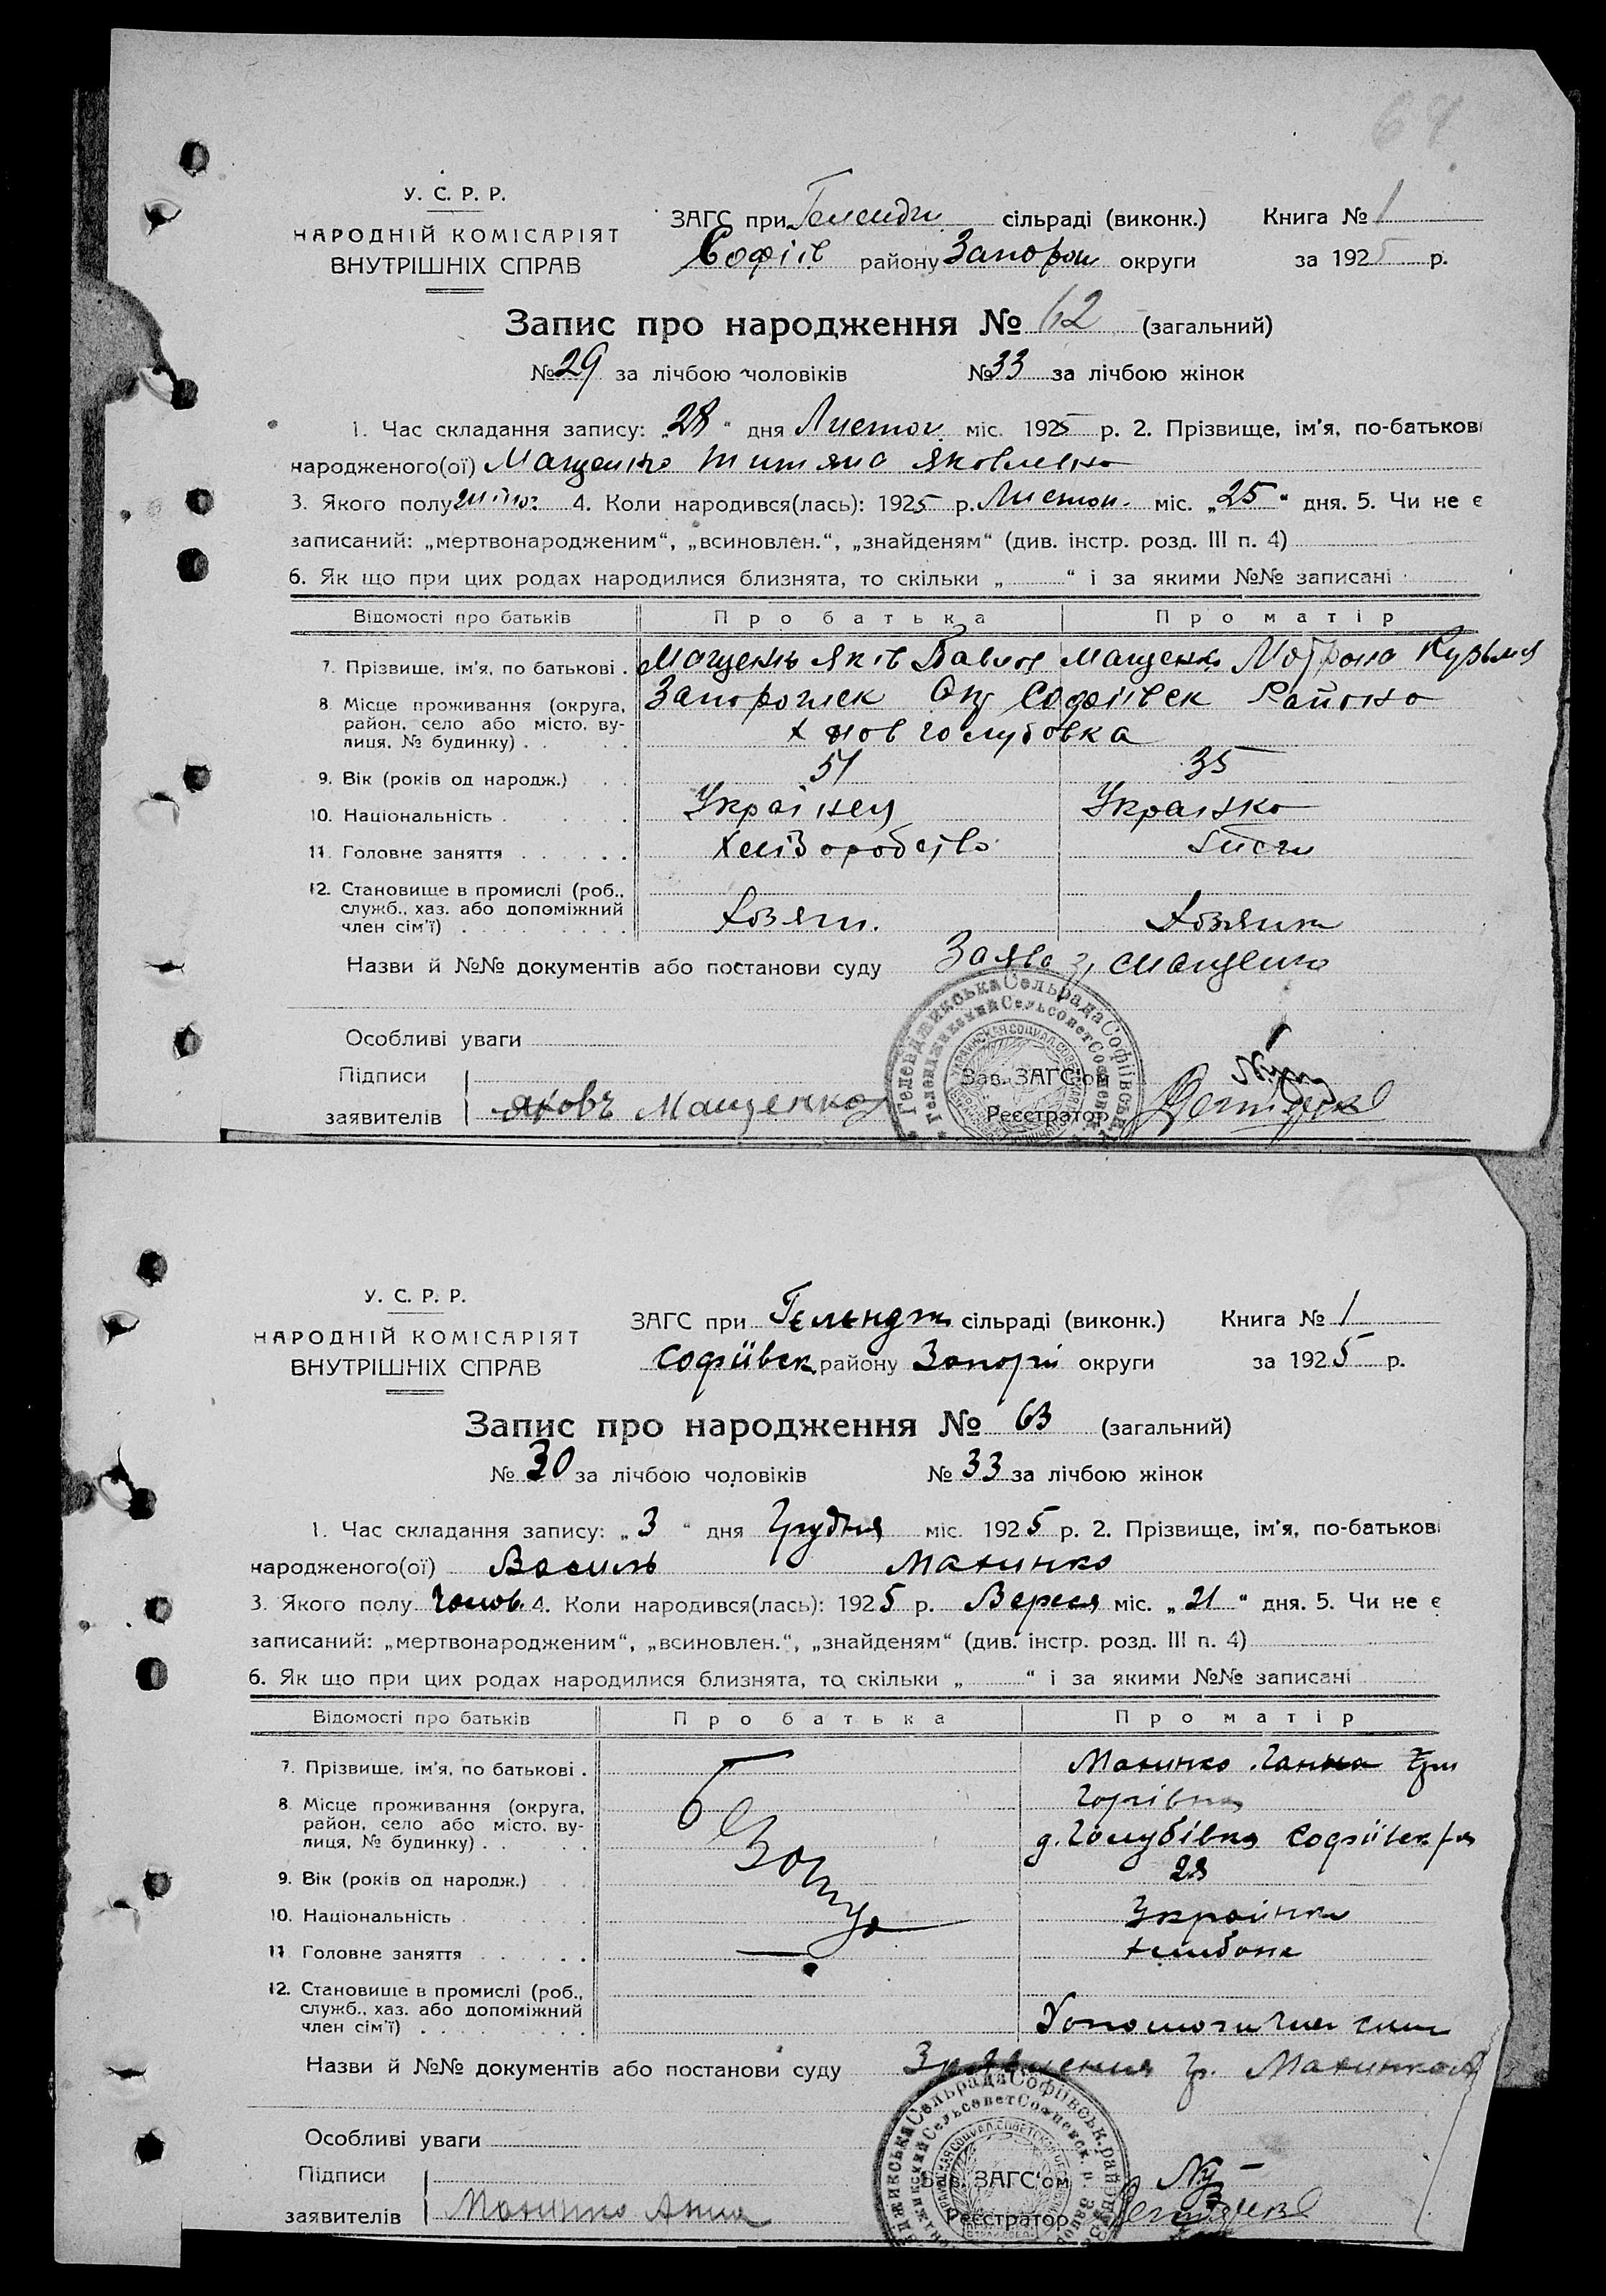 64
У. С. Р. Р.
НАРОДНІЙ КОМІСАРІЯТ
ВНУТРІШНІХ СПРАВ
ЗАГС при сільраді (виконк.) Книга № 1
Софіїв району Запорож округи за 1925 р.
Запис про народження № 62 (загальний)
№ 29 за лічбою чоловіків № 33 за лічбою жінок
1. Час складання запису: „28“ дня Листоп. міс. 1925 р. 2. Прізвище, ім'я, по-батькові
народженого(ої) Мащенко Титяна Яковлевна
3. Якого полу 4. Коли народився(лась): 1925 р. Листоп. міс. „25“ дня. 5. Чи не є
записаний: „мертвонародженим“, „всиновлен.“, „знайденям“ (див. інстр. розд. III п. 4)
6. Як що при цих родах народилися близнята, то скільки „ “ і за якими №№ записані
Відомості про батьків Про батька Про матір
7. Прізвище, ім'я, по батькові . Мащенко Яків Павлов Мащенко Мотрона Кузьмі
8. Місце проживання (округа, Запорожск Окр Софіївск Района
район, село або місто, ву-
лиця, № будинку) . . х нов голубовка
9. Вік (років од народж.) . . 51 35
10. Національність . Українец Українка
11. Головне заняття . . . . . . Хліборобство
12. Становище в промислі (роб.,
служб., хаз. або допоміжний
член сім'ї) . . . Хозяин. Хозяйка
Назви й №№ документів або постанови суду Заява гр. Мащенко
Особливі уваги
Підписи Зав. ЗАГС'ом
заявителів Яковъ Мащенко Реєстратор
Гелендживська Сельрада Софіївськ
Сельсовет
65
У. С. Р. Р.
НАРОДНІЙ КОМІСАРІЯТ
ВНУТРІШНІХ СПРАВ
ЗАГС при Гєлендж сільраді (виконк.) Книга № 1
Софіївск району Запорі округи за 1925 р.
Запис про народження № 63 (загальний)
№ 30 за лічбою чоловіків № 33 за лічбою жінок
1. Час складання запису: „3“ дня Грудня міс. 1925 р. 2. Прізвище, ім'я, по-батькові
народженого(ої) Василь Махинко
3. Якого полу Чолов. 4. Коли народився(лась): 1925 р. Вересня міс. „21“ дня. 5. Чи не є
записаний: „мертвонародженим“, „всиновлен.“, „знайденям“ (див. інстр. розд. III п. 4)
6. Як що при цих родах народилися близнята, то скільки „ “ і за якими №№ записані
Відомості про батьків Про батька Про матір
7. Прізвище, ім'я, по батькові . Махинко Ганна Гри
8. Місце проживання (округа, горівна
район, село або місто, ву-
лиця, № будинку) . . д. Голубівка Софіївск р-на
9. Вік (років од народж.) 28
10. Національність . Українка
11. Головне заняття . . . . . .
12. Становище в промислі (роб.,
служб., хаз. або допоміжний
член сім'ї) . . . Допоможитчи член
Назви й №№ документів або постанови суду гр. Махинко
Особливі уваги
Підписи Зав. ЗАГС'ом
заявителів Махинко Анна Реєстратор
Сельрада Софіївськ. рай
Сельсовет